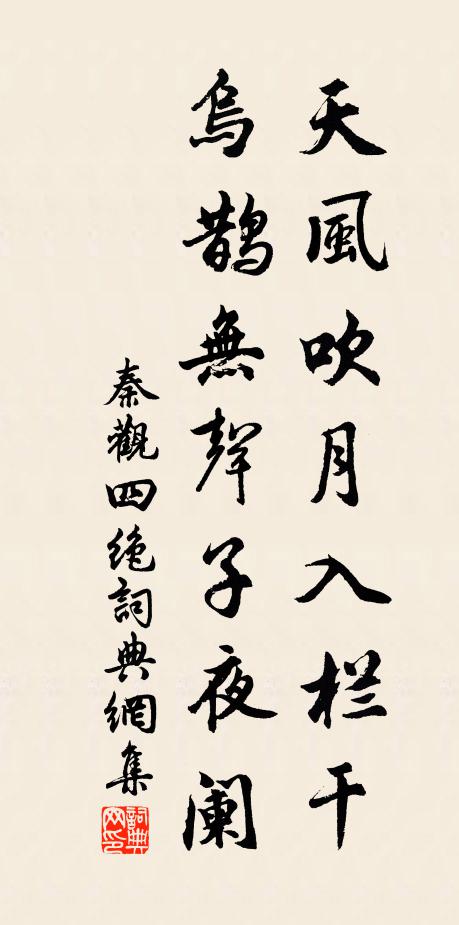 天風吹月入栏干
烏鵲無聲子夜阑
秦觀四绝詞典網集
詞典网印